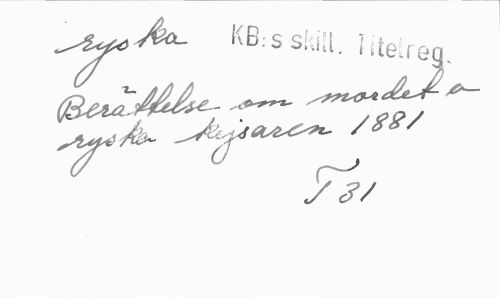 ryska KB:s skill. Titelreg.
Berättelse om mordet a
ryska kejsaren 1881
T 31